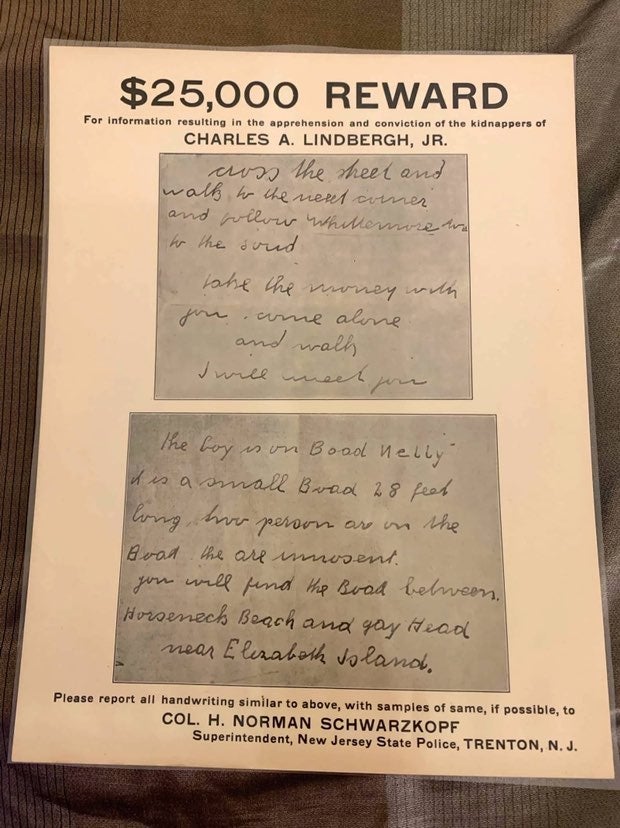 $25,000 REWARD
For information resulting in the apprehension and conviction of the kidnappers of
CHARLES A. LINDBERGH, JR.
cross the street and
walk to the next corner
and follow Whittemore Ave
to the soud
take the money with
you. come alone
and walk
I will meet you
the boy is on Boad Nelly
it is a small Boad 28 feet
long, two person are on the
Boad. the are innosent.
you will find the Boad between
Horseneck Beach and gay Head
near Elizabeth Island.
Please report all handwriting similar to above, with samples of same, if possible, to
COL. H. NORMAN SCHWARZKOPF
Superintendent, New Jersey State Police, TRENTON, N. J.